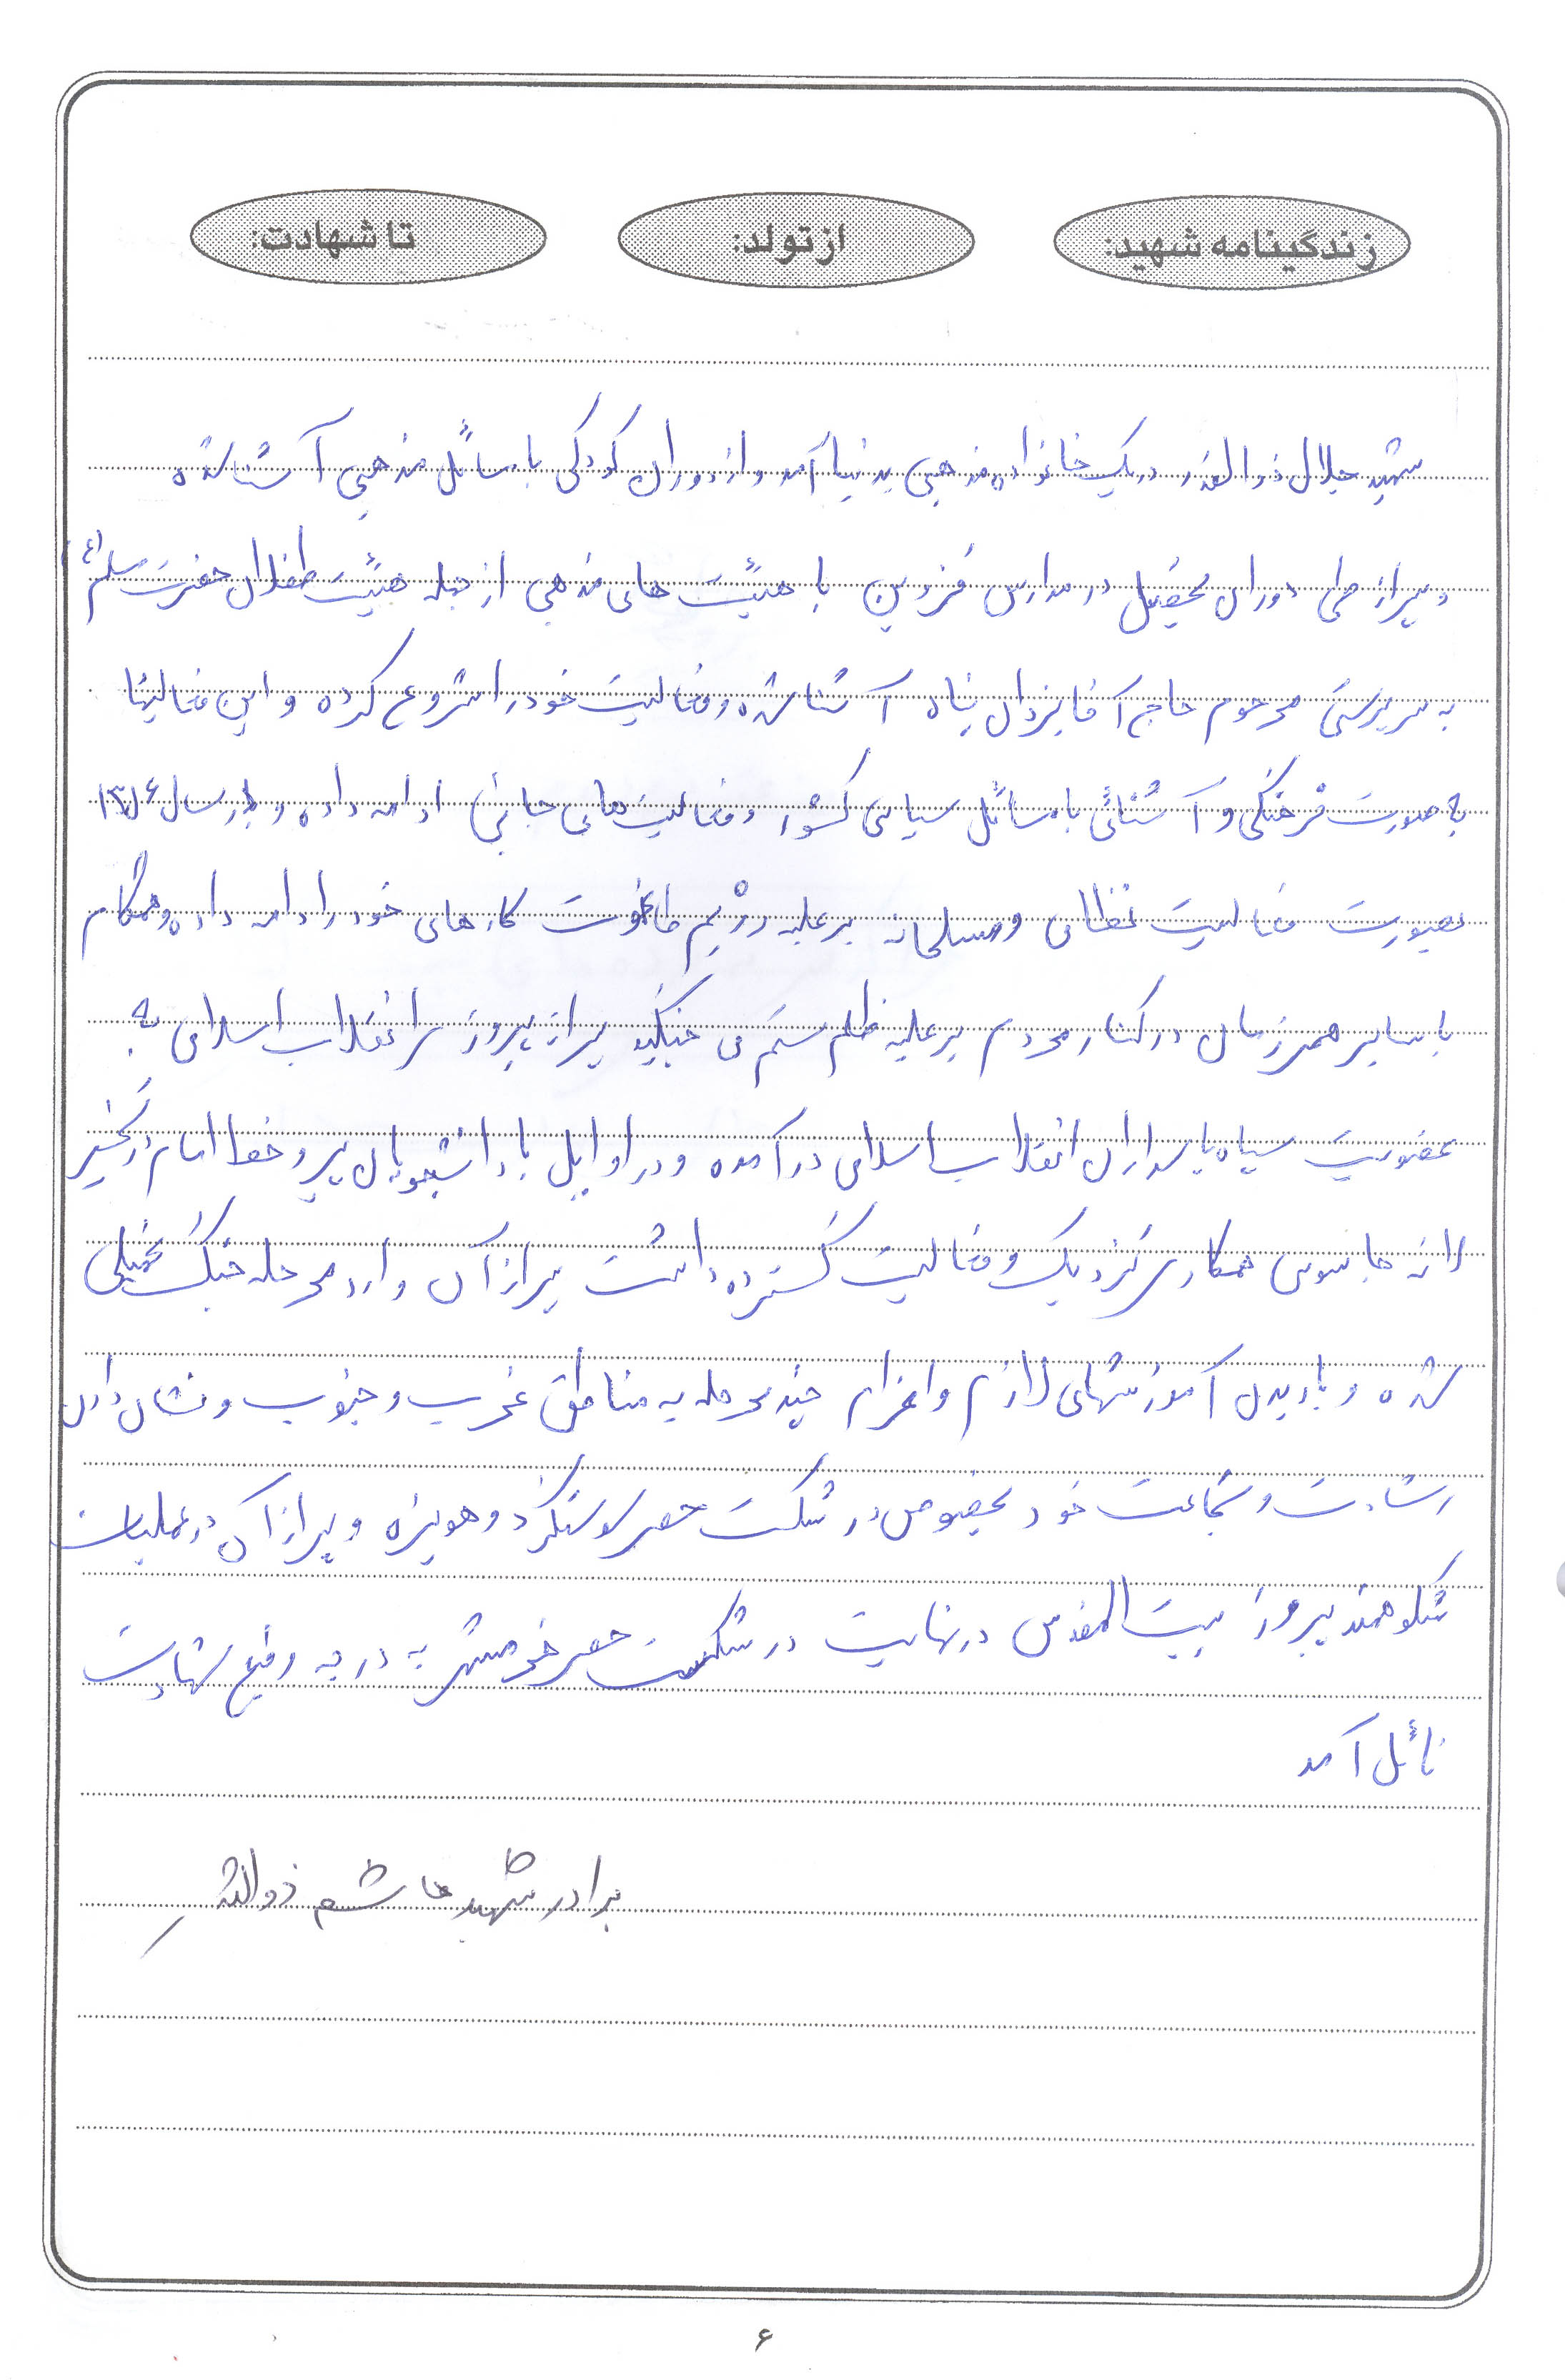 زندگینامه شهید: از تولد: تا شهادت:
شهید جلال ذوالقدر در یک خانواده مذهبی بدنیا آمد و از دوران کودکی با مسائل مذهبی آشنا شده
و پس از طی دوران تحصیل در مدارس قزوین با هیئت های مذهبی از جمله هیئت طفلان حضرت مسلم (ع)
به سرپرستی مرحوم حاج آقا یزدان پناه آشنا شده و فعالیت خود را شروع کرده و این فعالیتها
به صورت فرهنگی و آشنائی با مسائل سیاسی کشور و فعالیت های جانبی ادامه داده و در سال ۱۳۵۶
بصورت فعالیت نظامی و مسلحانه بر علیه رژیم طاغوت کارهای خود را ادامه داده و همگام
با سایر همرزمان در کنار مردم بر علیه ظلم ستم می جنگید پس از پیروزی انقلاب اسلامی به
عضویت سپاه پاسداران انقلاب اسلامی درآمده و در اوایل با دانشجویان پیرو خط امام در تسخیر
لانه جاسوسی همکاری نزدیک و فعالیت گسترده داشت پس از آن وارد مرحله جنگ تحمیلی
شده و با دیدن آموزشهای لازم و اعزام چند مرحله به مناطق غرب و جنوب و نشان دادن
رشادت و شجاعت خود بخصوص در شکست حصر سوسنگرد و هویزه و پس از آن در عملیات
شکوهمند پیروز بیت المقدس در نهایت در شکست حصر خرمشهر به درجه رفیع شهادت
نائل آمد
برادر شهید هاشم ذوالقدر
۶